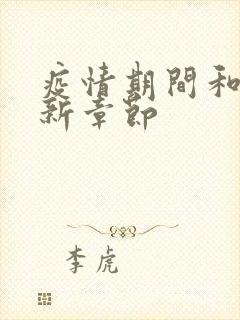 疫情期間和
新章節
李虎